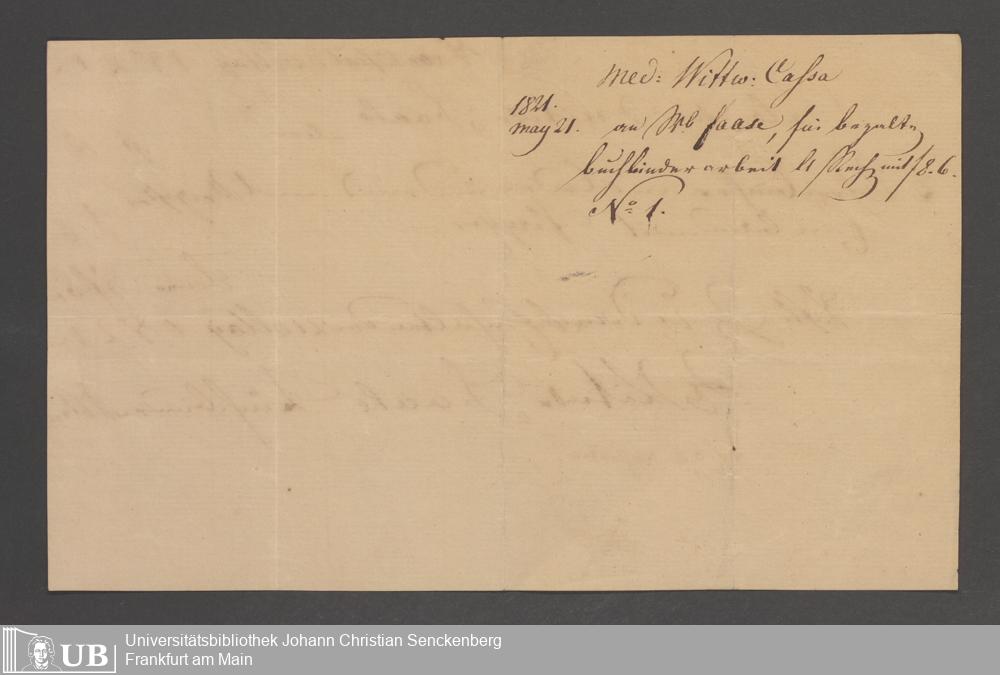 Med: Wittw: Cassa
1821.
May 21. an Wb Haase, für bezalte
buchbinder arbeit lt Rech mit f 8.6.
No 1.
UB
Universitätsbibliothek Johann Christian Senckenberg
Frankfurt am Main